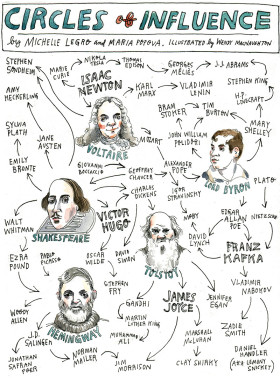 CIRCLES of INFLUENCE
by MICHELLE LEGRO and MARIA POPOVA, ILLUSTRATED by WENDY MACNAUGHTON
STEPHEN
SONDHEIM
MARIE
CURIE
NIKOLA
TESLA
THOMAS
EDISON
GEORGES
MÉLIÈS
J.J. ABRAMS
STEPHEN KING
AMY
HECKERLING
ISAAC
NEWTON
KARL
MARX
VLADIMIR
LENIN
H.P.
LOVECRAFT
BRAM
STOKER
TIM
BURTON
SYLVIA
PLATH
JANE
AUSTEN
VOLTAIRE
MOZART
JOHN WILLIAM
POLIDORI
MARY
SHELLEY
EMILY
BRONTE
GIOVANNI
BOCCACCIO
GEOFFREY
CHAUCER
ALEXANDER
POPE
LORD BYRON
PLATO
CHARLES
DICKENS
IGOR
STRAVINSKY
WALT
WHITMAN
SHAKESPEARE
VICTOR
HUGO
MOBY
EDGAR
ALLAN
POE
NIETZSCHE
EZRA
POUND
PABLO
PICASSO
OSCAR
WILDE
DAVID
SIMON
TOLSTOY
DAVID
LYNCH
FRANZ
KAFKA
STEPHEN
FRY
VLADIMIR
NABOKOV
WOODY
ALLEN
HEMINGWAY
GANDHI
JAMES
JOYCE
JENNIFER
EGAN
J.D.
SALINGER
MARTIN
LUTHER KING
ZADIE
SMITH
MUHAMMAD
ALI
MARSHALL
MCLUHAN
JONATHAN
SAFRAN
FOER
NORMAN
MAILER
JIM
MORRISON
CLAY SHIRKY
DANIEL
HANDLER
(AKA LEMONY
SNICKET)